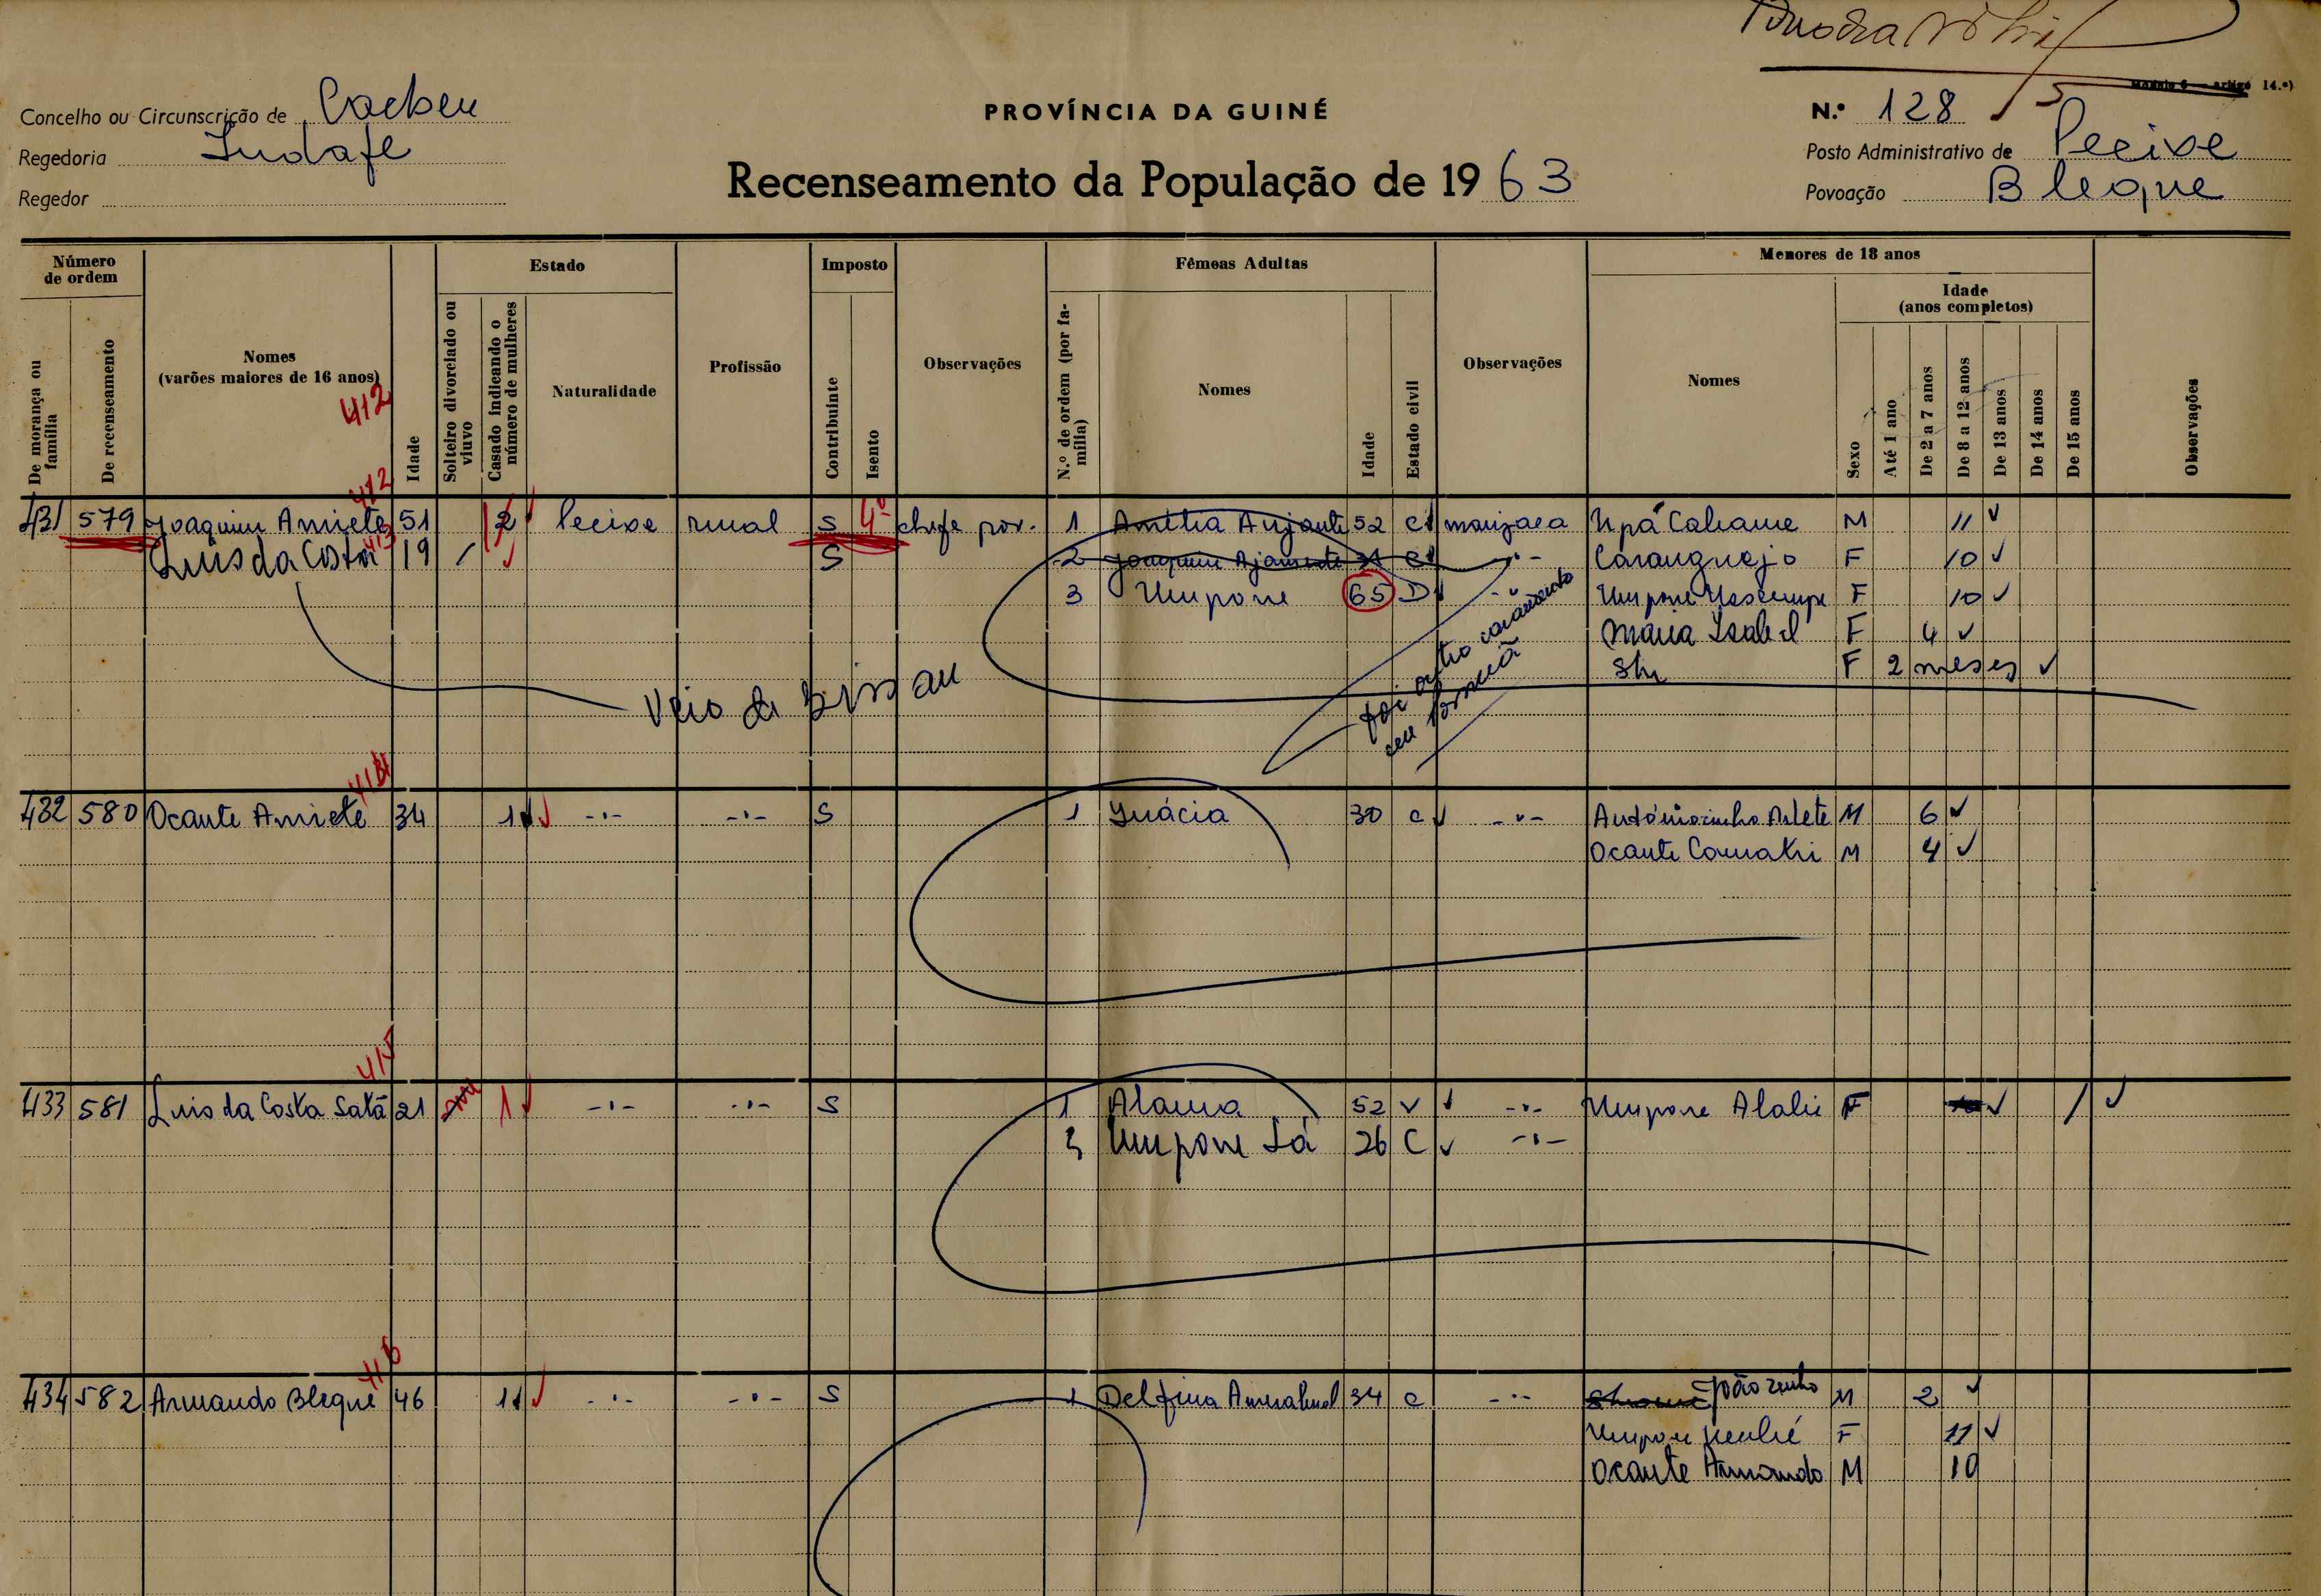 Modelo 6 — artigo 14.º)
Concelho ou Circunscrição de Cacheu
PROVÍNCIA DA GUINÉ
N.º 128
Regedoria Indafe
Posto Administrativo de Pecixe
Recenseamento da População de 1963
Regedor
Povoação Bleque
Número de ordem
Estado
Imposto
Fêmeas Adultas
Menores de 18 anos
Idade (anos completos)
De morança ou família
De recenseamento
Nomes (varões maiores de 16 anos)
Idade
Solteiro divorciado ou viuvo
Casado indicando o número de mulheres
Naturalidade
Profissão
Contribuinte
Isento
Observações
N.º de ordem (por família)
Nomes
Idade
Estado civil
Observações
Nomes
Sexo
Até 1 ano
De 2 a 7 anos
De 8 a 12 anos
De 13 anos
De 14 anos
De 15 anos
Observações
412
412
431 579 Joaquim Amiete 51 2 Pecixe rural S chefe pov. 1 Amélia Anjante 52 C manjaca Npá Cabame M 11
413
Luis da Costa 19 S 2 Joaquina C -"- Caranguejo F 10
3 Umpone 65 D -"- Umpone F 10
Maria Isabel F 4
F 2 meses
Veio de Bissau
foi outro casamento
414
432 580 Ocante Amiete 34 1 -"- -"- S 1 Inácia 30 C -"- Antóniozinho Arlete M 6
Ocante M 4
415
433 581 Luis da Costa Satã 21 1 -"- -"- S 1 Alama 52 V -"- Umpone Alalie F
Umpone Sá 26 C -"-
416
434 582 Armando Bleque 46 1 -"- -"- S 1 Delfina 34 C -"- Joãozinho M 2
Umpone F 11
Ocante Armando M 10